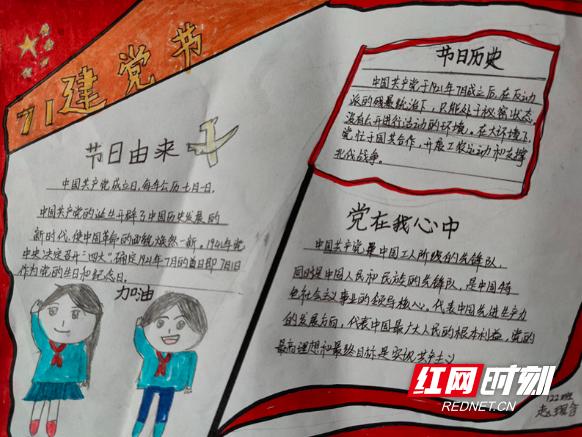 71建党节
节日由来
中国共产党成立日,每年公历七月一日。
中国共产党的诞生开辟了中国历史发展的
新时代,使中国革命的面貌焕然一新。1941年党
中央决定召开“四大”确定1921年7月的首日即7月1日
作为党的生日和纪念日。
加油
节日历史
中国共产党于1921年7月成立后,在反动
派的残暴统治下,只能处于秘密状态,
没有公开进行活动的环境。在大环境下,
党忙于国共合作,开展工农运动和支撑
北伐战争。
党在我心中
中国共产党是中国工人阶级的先锋队,
同时是中国人民和民族的先锋队,是中国特
色社会主义事业的领导核心。代表中国先进生产力
的发展方向,代表中国最广大人民的根本利益,党的
最高理想和最终目标是实现共产主义
红网时刻
REDNET.CN
122班